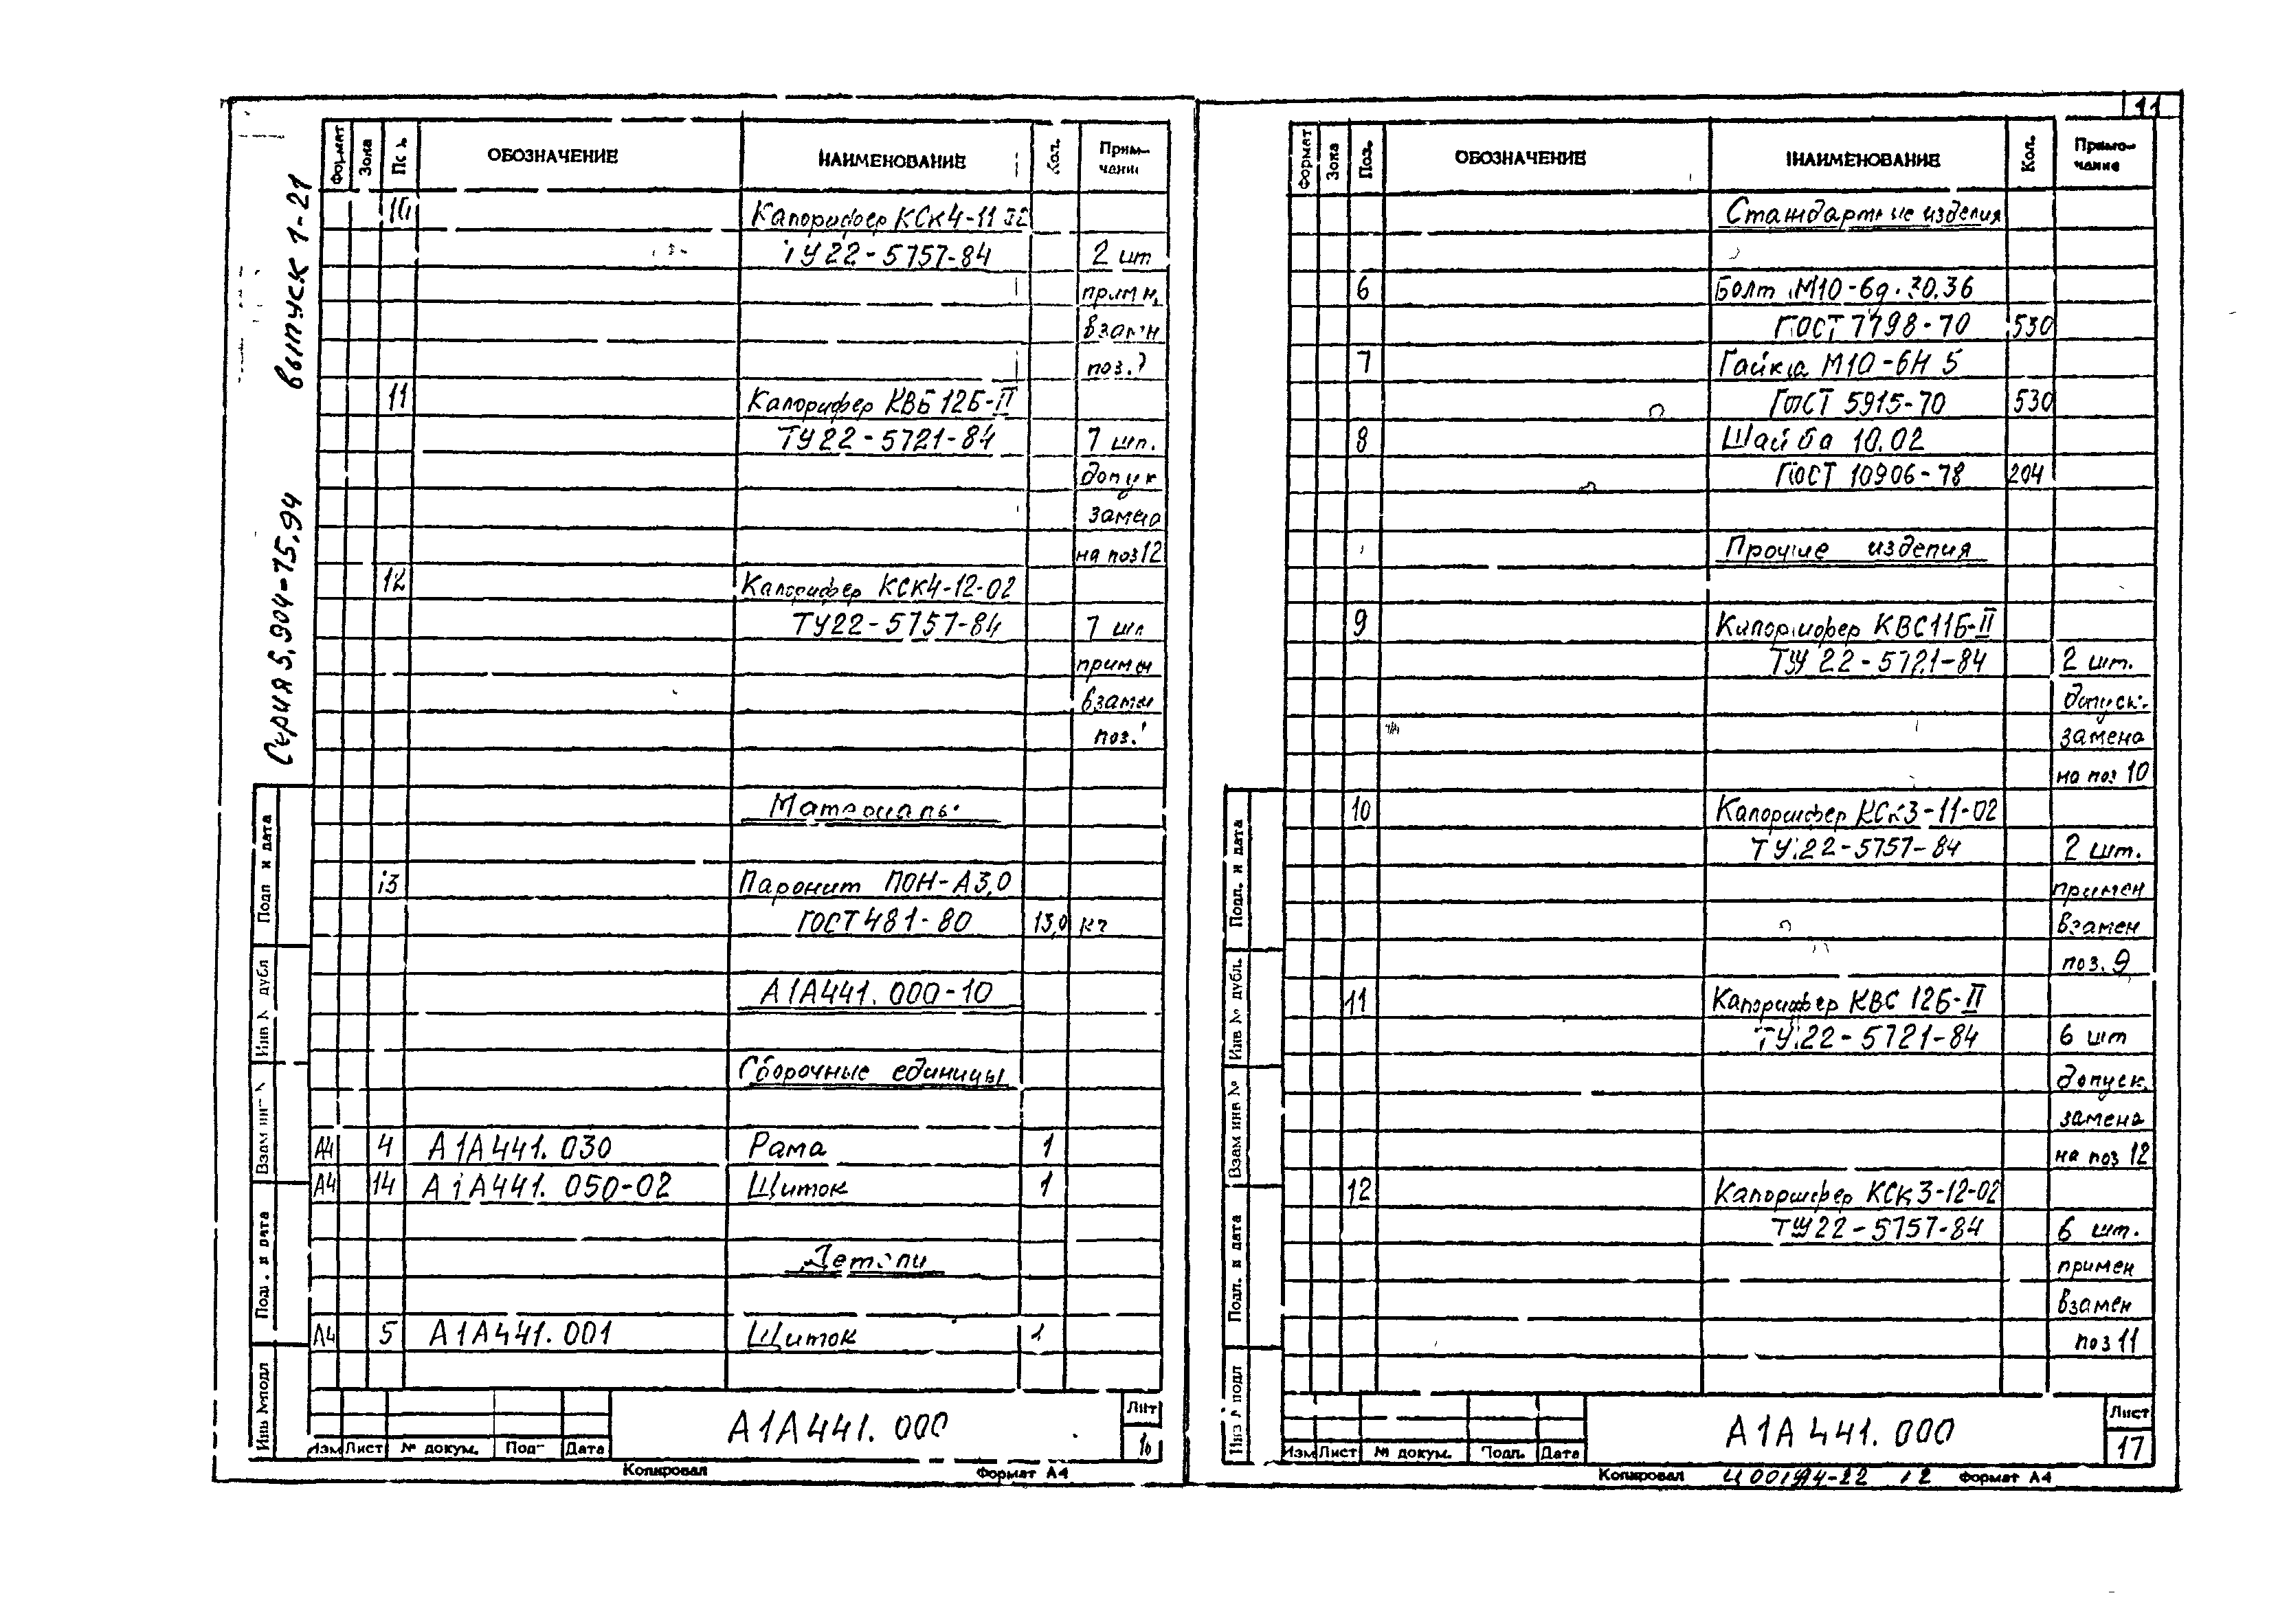 11
Серия 5.904-75.94 выпуск 1-21
Формат Зона ОБОЗНАЧЕНИЕ НАИМЕНОВАНИЕ Кол.
10 Калорифер КСк4-11
ТУ22-5757-84 2 шт
примен.
взамен
поз.
11 Калорифер КВБ 12Б-II
ТУ22-5721-84 7 шт.
допуск
замена
на поз 12
12 Калорифер КСК4-12-02
ТУ22-5757-84 7 шт
примен
взамен
поз.
Материалы
13 Паронит ПОН-А3,0
ГОСТ 481-80 13,0 кг
А1А441.000-10
Сборочные единицы
А4 4 А1А441.030 Рама 1
А4 14 А1А441.050-02 Щиток 1
Детали
А4 5 А1А441.001 Щиток 1
Подп и дата
Инв № дубл
Взам инв №
Подп. и дата
Инв №подл
Изм Лист № докум. Подп Дата
А1А441.000
Лист
16
Копировал Формат А4
Формат Зона Поз. ОБОЗНАЧЕНИЕ НАИМЕНОВАНИЕ Кол. Примечание
Стандартные изделия
6 Болт М10-6g.30.36
ГОСТ 7798-70 530
7 Гайка М10-6Н 5
ГОСТ 5915-70 530
8 Шайба 10.02
ГОСТ 10906-78 204
Прочие изделия
9 Калорифер КВС11Б-II
ТУ 22-5721-84 2 шт.
допуск.
замена
на поз 10
10 Калорифер КСк3-11-02
ТУ.22-5757-84 2 шт.
примен
взамен
поз. 9
11 Калорифер КВС 12Б-II
ТУ.22-5721-84 6 шт
допуск.
замена
на поз 12
12 Калорифер КСк3-12-02
ТУ22-5757-84 6 шт.
примен
взамен
поз 11
Подп. и дата
Инв № дубл.
Взам инв №
Подп. и дата
Инв № подл
Изм Лист № докум. Подп. Дата
А1А441.000
Лист
17
Копировал 12 Формат А4